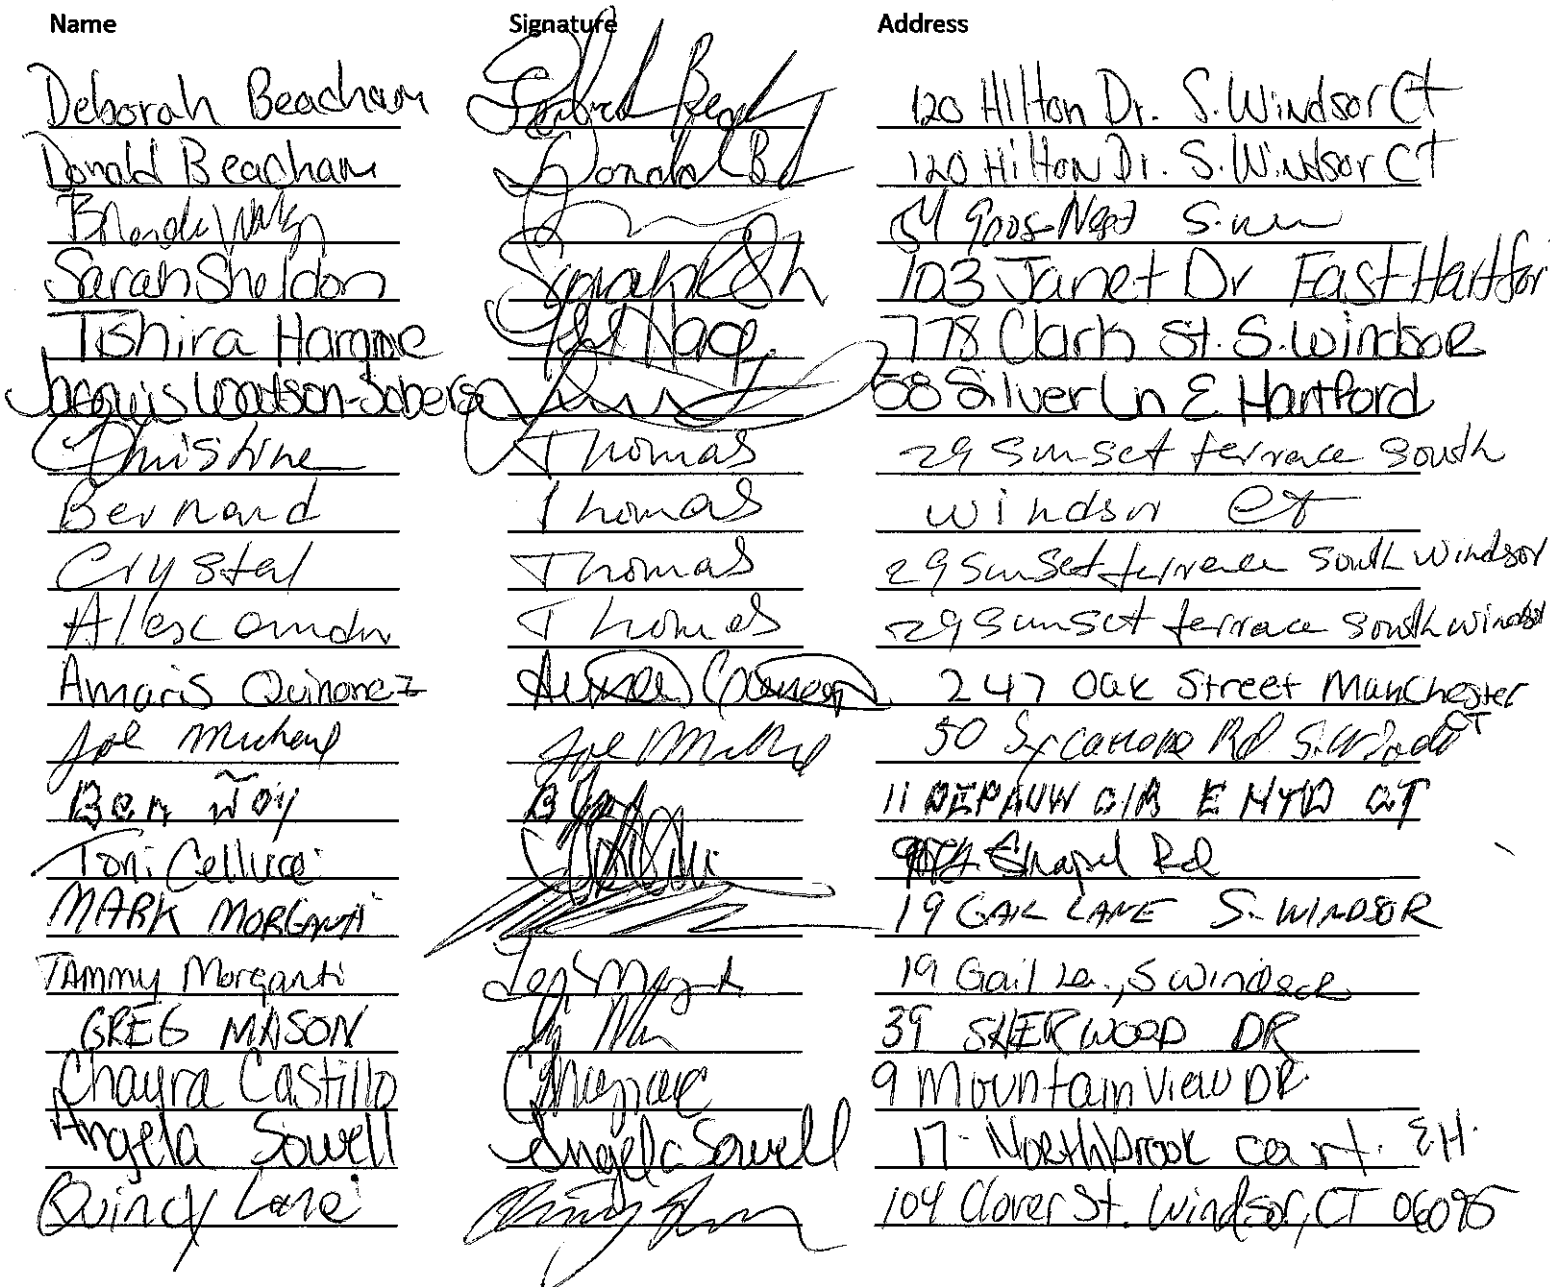 Name Signature Address
Deborah Beacham 120 Hilton Dr. S. Windsor Ct
Donald Beacham Donald B 120 Hilton Dr. S. Windsor CT
54
Sarah Sheldon Sarah 103 Janet Dr East Hartfor
Tishira 778 Clark St. S. Windsor
Jacquis Watson-Soberg 58 Silver Ln E Hartford
Christine Thomas 29 Sunset terrace South
Bernard Thomas Windsor CT
Crystal Thomas 29 Sunset terrace South Windsor
Thomas 29 Sunset terrace South Windsor
Amaris Quinonez 247 Oak Street Manchester
Joe Michaud Joe 50 Sycamore Rd S. CT
Ben 11 DEPAUW CIR E HTD CT
Toni Cellucci Chapel Rd
MARK MORGANTI 19 GAIL LANE S. WINDSOR
TAMMY Morganti 19 Gail Ln., S Windsor
GREG MASON 39 SHERWOOD DR
Chayra Castillo 9 Mountain View DR.
Angela Sowell Angela Sowell 17 Northbrook court. E.H.
Quincy Lane 104 Clover St. Windsor, CT 06095